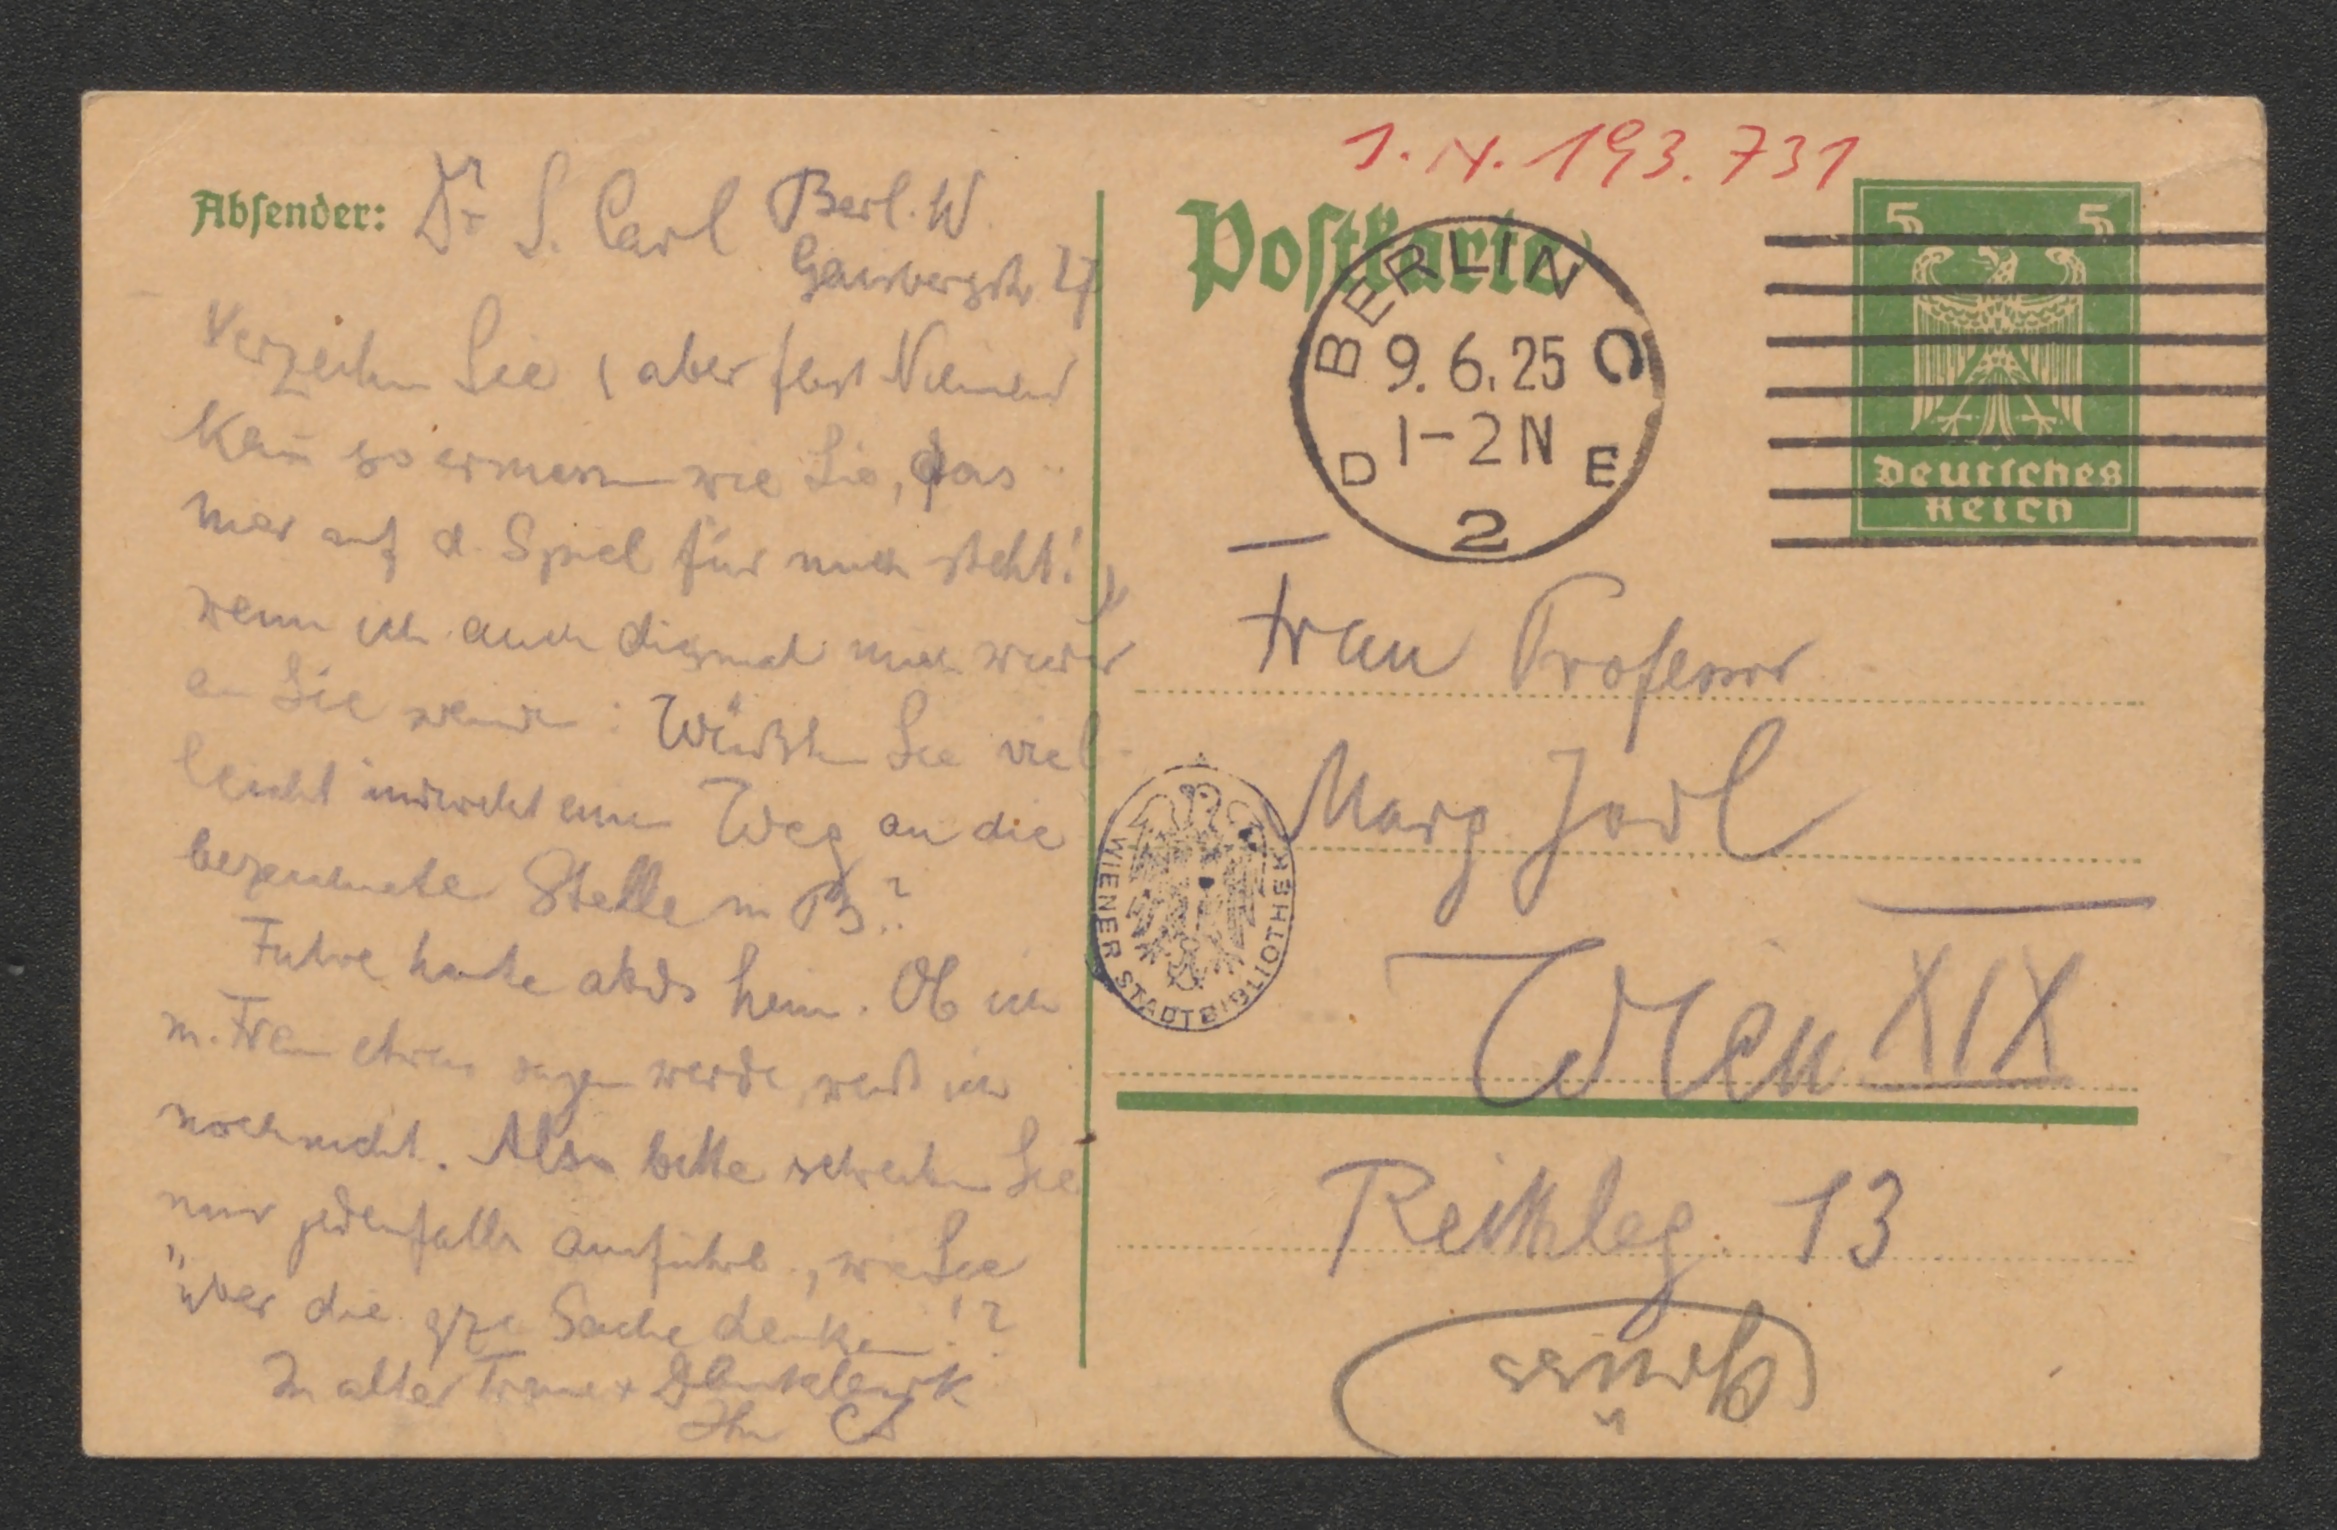 Absender: Dr S. Carl Berl. W
Gaisbergstr 27
Verzeihen Sie, aber fast Niemand
kan̄ so ermessen wie Sie, das
mir auf d. Spiel für mich steht!
wenn ich auch diesmal mich wieder
an Sie wende: Wüßten Sie viel-
leicht indirekt einen Weg an die
bezeichnete Stelle in B?
Fahre heute abds heim. Ob ich
m. Frau etwas sagen werde, weiß ich
noch nicht. Also bitte schreiben Sie
mir jedenfalls ausführl., wie Sie
über die gze Sache denken!?
In alter Treue +
Ihr CS
1. N. 193.731
Postkarte
BERLIN C
9. 6. 25
1-2 N
D E
2
5 5
Deutsches
Reich
Frau Professor
Marg. Jodl
WIENER STADTBIBLIOTHEK
Wien XIX
Reithleg. 13